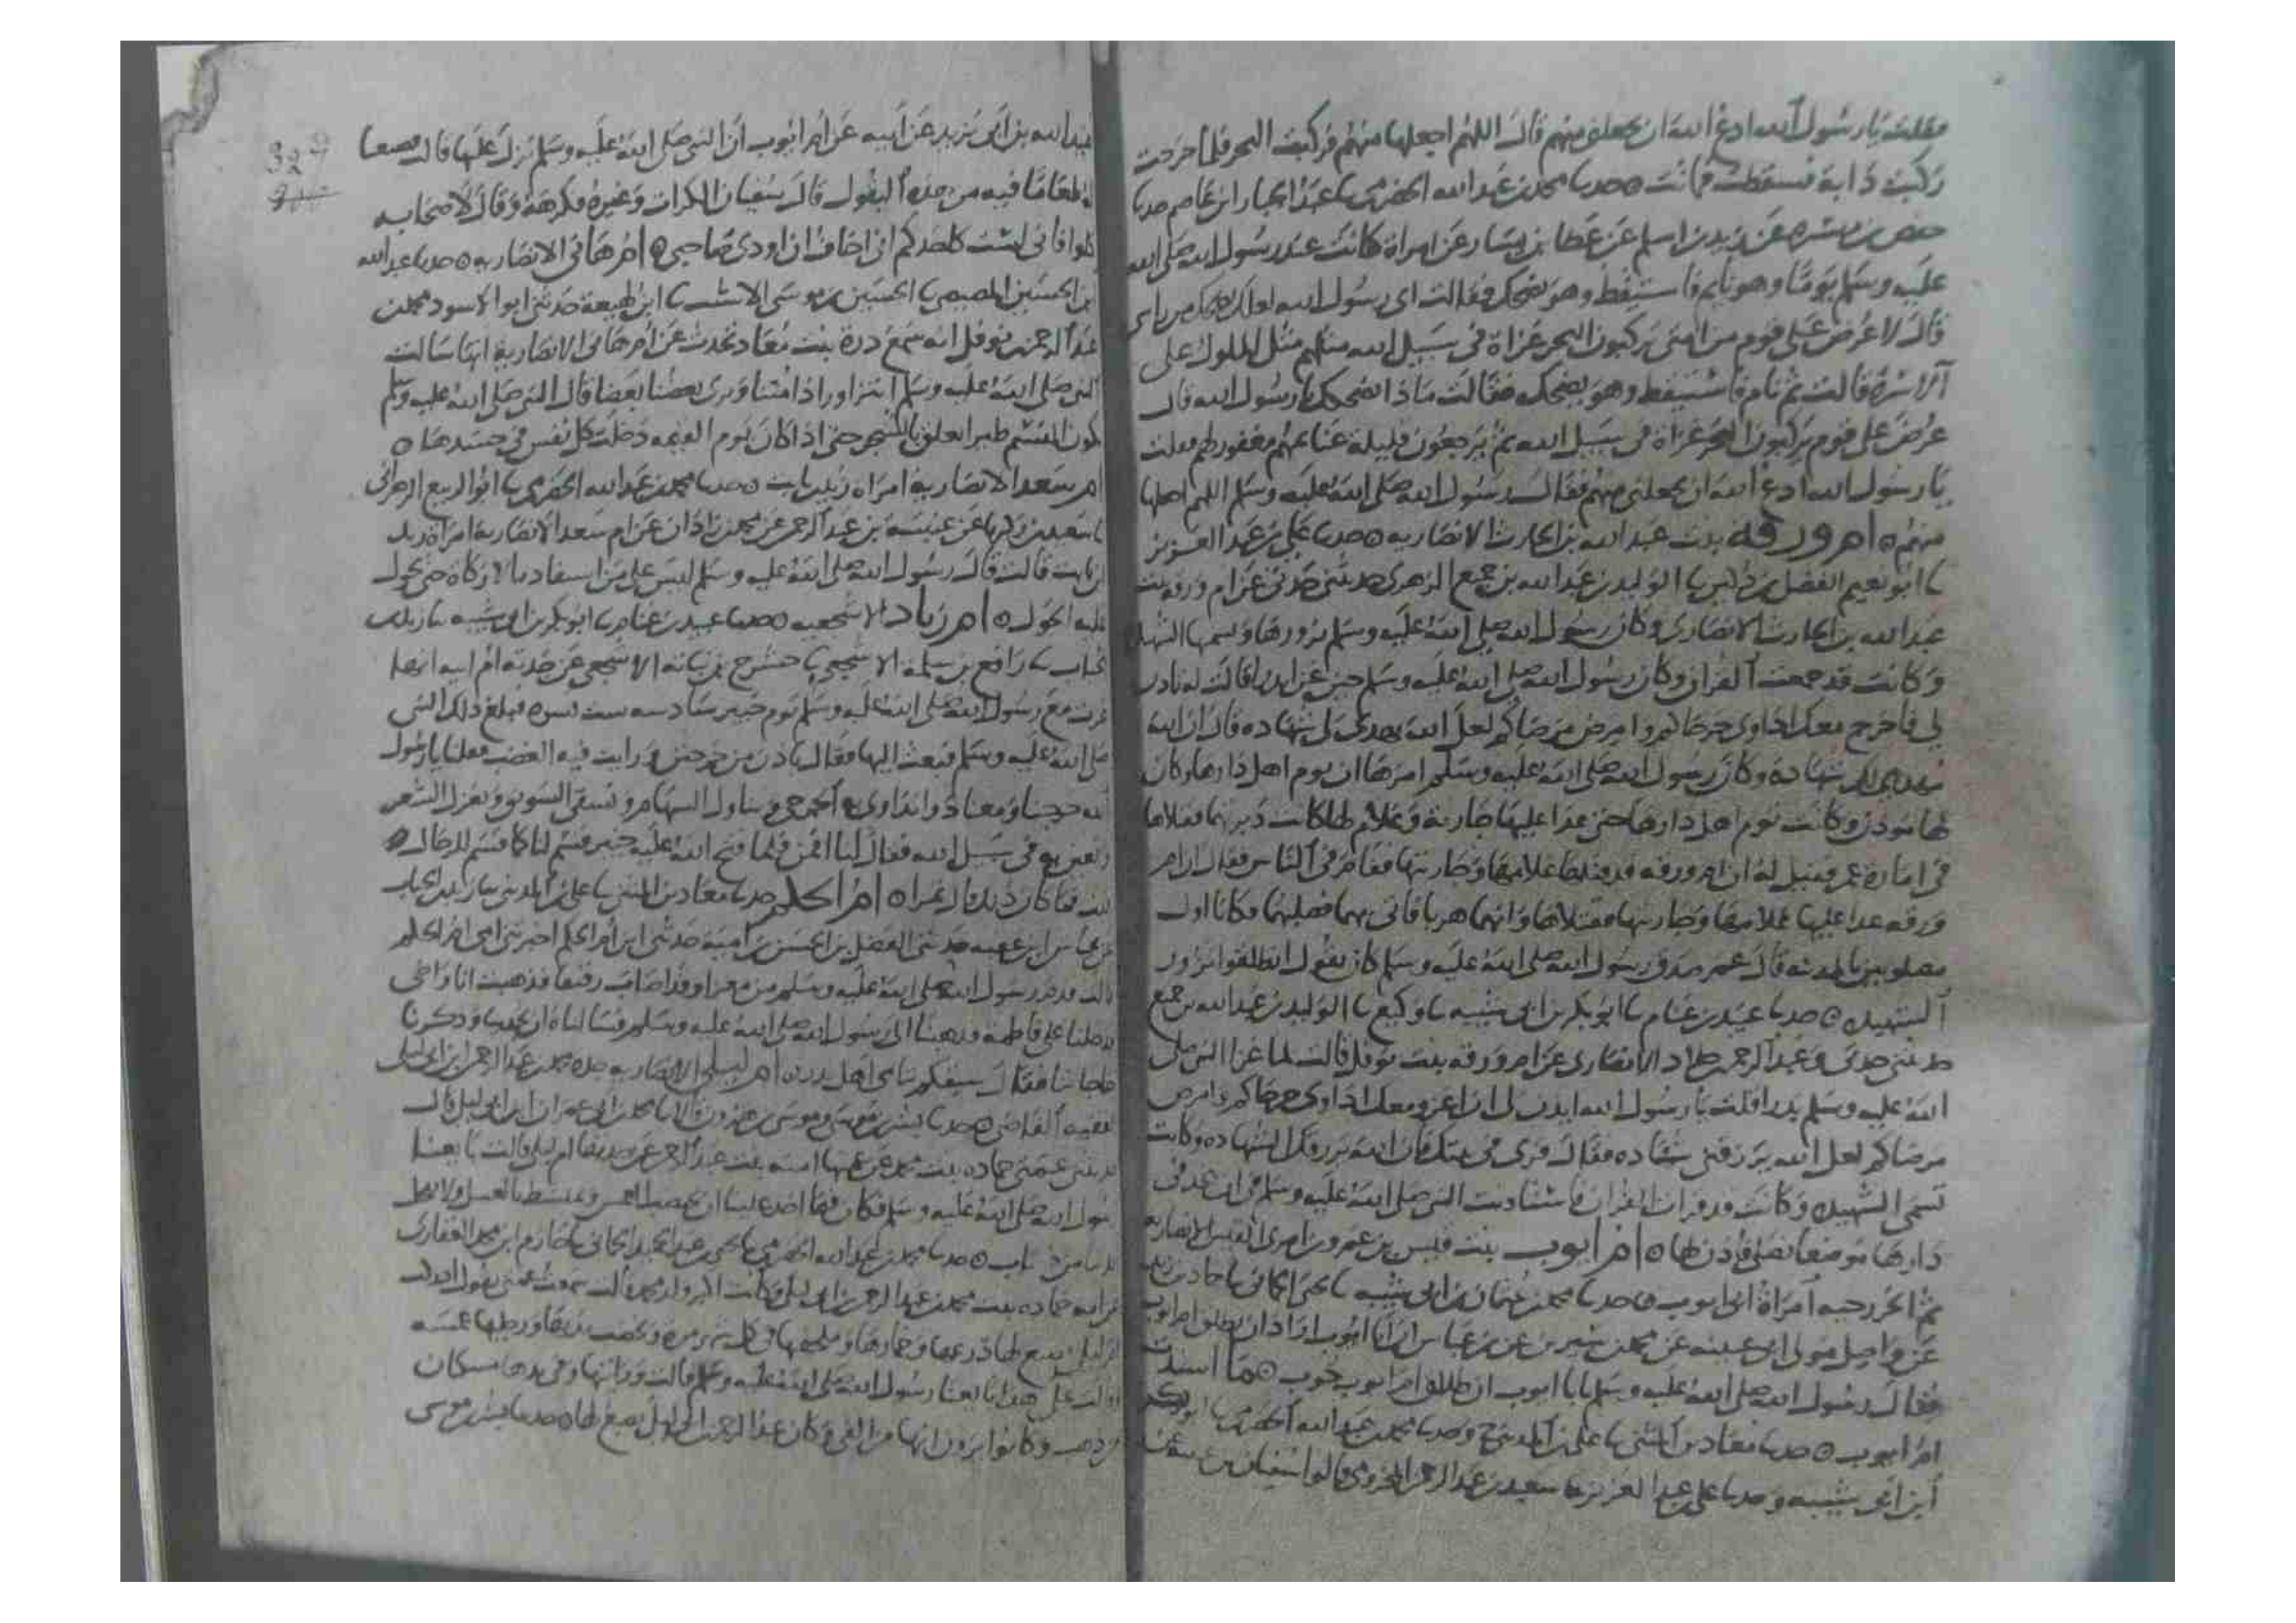 فقلت يا رسول الله ادع الله ان يجعلني منهم قال اللهم اجعلها منهم فركبت البحر فلما خرجت
ركبت دابة فسقطت فماتت ه حدثنا محمد بن عبد الله الحضرمي نا عبد الجبار ابن عاصم حدثنا
حفص بن ميسرة عن زيد بن اسلم عن عطا بن يسار عن امراة كانت عند رسول الله صلى الله
عليه وسلم يوما وهو نايم فاستيقظ وهو يضحك فقالت اي رسول الله
قال لا عرض علي قوم من امتي يركبون البحر غزاة في سبيل الله مثلهم مثل الملوك على
الاسرة قالت ثم نام فاستيقظ وهو يضحك فقالت ماذا اضحكك يا رسول الله قال
عرض علي قوم يركبون البحر غزاة في سبيل الله ثم يرجعون قليلة غنائمهم مغفور لهم فقلت
يا رسول الله ادع الله ان يجعلني منهم فقال رسول الله صلى الله عليه وسلم اللهم اجعلها
منهم ه ام ورقة بنت عبد الله بن الحارث الانصارية ه حدثنا علي بن عبد العزيز
نا ابو نعيم الفضل بن دكين نا الوليد بن عبد الله بن جميع الزهري حدثتني جدتي عن ام ورقة بنت
عبد الله بن الحارث الانصاري وكان رسول الله صلى الله عليه وسلم يزورها ويسميها الشهيدة
وكانت قد جمعت القران وكان رسول الله صلى الله عليه وسلم حين غزا بدرا قالت له تاذن
لي فاخرج معك اداوي جرحاكم وامرض مرضاكم لعل الله يهدي لي شهادة قال ان الله
مهدي لك شهادة وكان رسول الله صلى الله عليه وسلم امرها ان توم اهل دارها وكان
لها موذن وكانت توم اهل دارها حتى عدا عليها جارية وغلام لها كانت دبرتهما فقتلاها
في امارة عمر فقيل له ان ام ورقة قد قتلها غلامها وجاريتها فقام عمر في الناس فقال ان ام
ورقة عدا عليها غلامها وجاريتها فقتلاها وانهما هربا فاتي بهما فصلبهما فكانا اول
مصلوبين بالمدينة قال عمر صدق رسول الله صلى الله عليه وسلم كان يقول انطلقوا نزور
الشهيدة ه حدثنا عبيد بن غنام نا ابو بكر بن ابي شيبة نا وكيع نا الوليد بن عبد الله بن جميع
حدثتني جدتي وعبد الرحمن بن خلاد الانصاري عن ام ورقة بنت نوفل قالت لما غزا النبي صلى
الله عليه وسلم بدرا قلت يا رسول الله ايذن لي ان اغزو معك اداوي جرحاكم وامرض
مرضاكم لعل الله يرزقني شهادة فقال قري في بيتك فان الله يرزقك الشهادة وكانت
تسمى الشهيدة وكانت قد قرات القران فاستاذنت النبي صلى الله عليه وسلم في ان تتخذ في
دارها موضعا تصلي فاذن لها ه ام ايوب بنت قيس بن عمرو بن امرئ القيس الانصارية
ثم الخزرجية امراة ابي ايوب ه حدثنا محمد بن عثمان بن ابي شيبة نا يحيى الحماني نا حماد بن زيد
عن واصل مولى ابي عيينة عن محمد بن سيرين عن ابن عباس ان ابا ايوب اراد ان يطلق ام ايوب
فقال رسول الله صلى الله عليه وسلم يا ابا ايوب ان طلاق ام ايوب حوب ه ما اسندت
ام ايوب ه حدثنا معاذ بن المثنى نا علي بن المديني ح وحدثنا محمد بن عبد الله الحضرمي نا ابو بكر
ابن ابي شيبة وحدثنا علي بن عبد العزيز نا سعيد بن عبد الرحمن المخزومي قالوا نا سفيان بن عيينة عن
عبيد الله بن ابي يزيد عن ابيه عن ام ايوب ان النبي صلى الله عليه وسلم نزل عليها قالت فصنعنا
له طعاما فيه من بعض البقول قال سفيان الكراث وغيره فكرهه وقال لاصحابه
كلوا فاني لست كاحدكم اني اخاف ان اوذي صاحبي ه ام هاني الانصارية ه حدثنا عبد الله
ابن الحسين المصيصي نا الحسين بن موسى الاشيب نا ابن لهيعة حدثني ابو الاسود محمد بن
عبد الرحمن بن نوفل انه سمع درة بنت معاذ تحدث عن ام هاني الانصارية انها سالت
النبي صلى الله عليه وسلم انتزاور اذا متنا ويرى بعضنا بعضا قال النبي صلى الله عليه وسلم
تكون النسم طيرا تعلق بالشجر حتى اذا كان يوم القيمة دخلت كل نفس في جسدها ه
ام سعد الانصارية امراة زيد بن ثابت ه حدثنا محمد بن عبد الله الحضرمي نا ابو الربيع الزهراني
نا سعيد بن زكريا عن عنبسة بن عبد الرحمن عن محمد بن زاذان عن ام سعد الانصارية امراة زيد
ابن ثابت قالت قال رسول الله صلى الله عليه وسلم ليس على من استفاد مالا زكاة حتى يحول
عليه الحول ه ام زياد الاشجعية ه حدثنا عبيد بن غنام نا ابو بكر بن ابي شيبة نا زيد بن
الحباب نا رافع بن سلمة الاشجعي نا حشرج بن زياد الاشجعي عن جدته ام ابيه انها
غزت مع رسول الله صلى الله عليه وسلم يوم خيبر سادسة ست نسوة فبلغ ذلك النبي
صلى الله عليه وسلم فبعث الينا فقال باذن من خرجتن ورايت فيه الغضب فقلنا يا رسول
الله خرجنا ومعنا دوا نداوي به الجرحى ونناول السهام ونسقي السويق ونغزل الشعر
ونعين به في سبيل الله فقال لنا اقمن فلما فتح الله عليه خيبر قسم لنا كما قسم للرجال ه
قلت فما كان ذلك قالت تمرا ه ام الحكم حدثنا معاذ بن المثنى نا علي بن المديني نا زيد بن الحباب
عن عياش ابن عقبة حدثني الفضل بن الحسن بن امية حدثني ابن ام الحكم اخبرتني امي ام الحكم
قالت قدم رسول الله صلى الله عليه وسلم من مغزاه وقد اصاب رقيقا فذهبت انا واختي
فدخلنا على فاطمة فذهبنا الى رسول الله صلى الله عليه وسلم فسالناه ان يخدمنا وذكرنا
حاجاتنا فقال سبقكم يتامى اهل بدر ه ام ليلى الانصارية جدة محمد بن عبد الرحمن ابن ابي ليلى
الفقيه القاضي ه حدثنا بشر بن موسى وموسى بن هارون قالا نا محمد بن ابي عمران ابن ابي ليلى قال
حدثتني عمتي حمادة بنت محمد عن عمتها امنة بنت عبد الرحمن عن جدتها ام ليلى قالت بايعنا
رسول الله صلى الله عليه وسلم فكان فيما اخذ علينا ان نختضب الغمس ونمتشط بالعسل ولا نقحل
ايدينا من خضاب ه حدثنا محمد بن عبد الله الحضرمي نا يحيى بن عبد الحميد الحماني نا حازم ابن محمد الغفاري
عن امه حمادة بنت محمد بن عبد الرحمن بن ابي ليلى وكانت اكبر ولد محمد قالت سمعت عمتي تقول ادركت
ام ليلى تصبغ لها درعها وخمارها وملحفتها في كل شهر مرة وتخضب يديها ورجليها غمسة
وقالت على هذا بايعنا رسول الله صلى الله عليه وسلم قالت ورايتها وفي يدها مسكتان
من ذهب وكانوا يرون انها من الفي وكان عبد الرحمن بن ابي ليلى يصبغ لها ه حدثنا بشر بن موسى